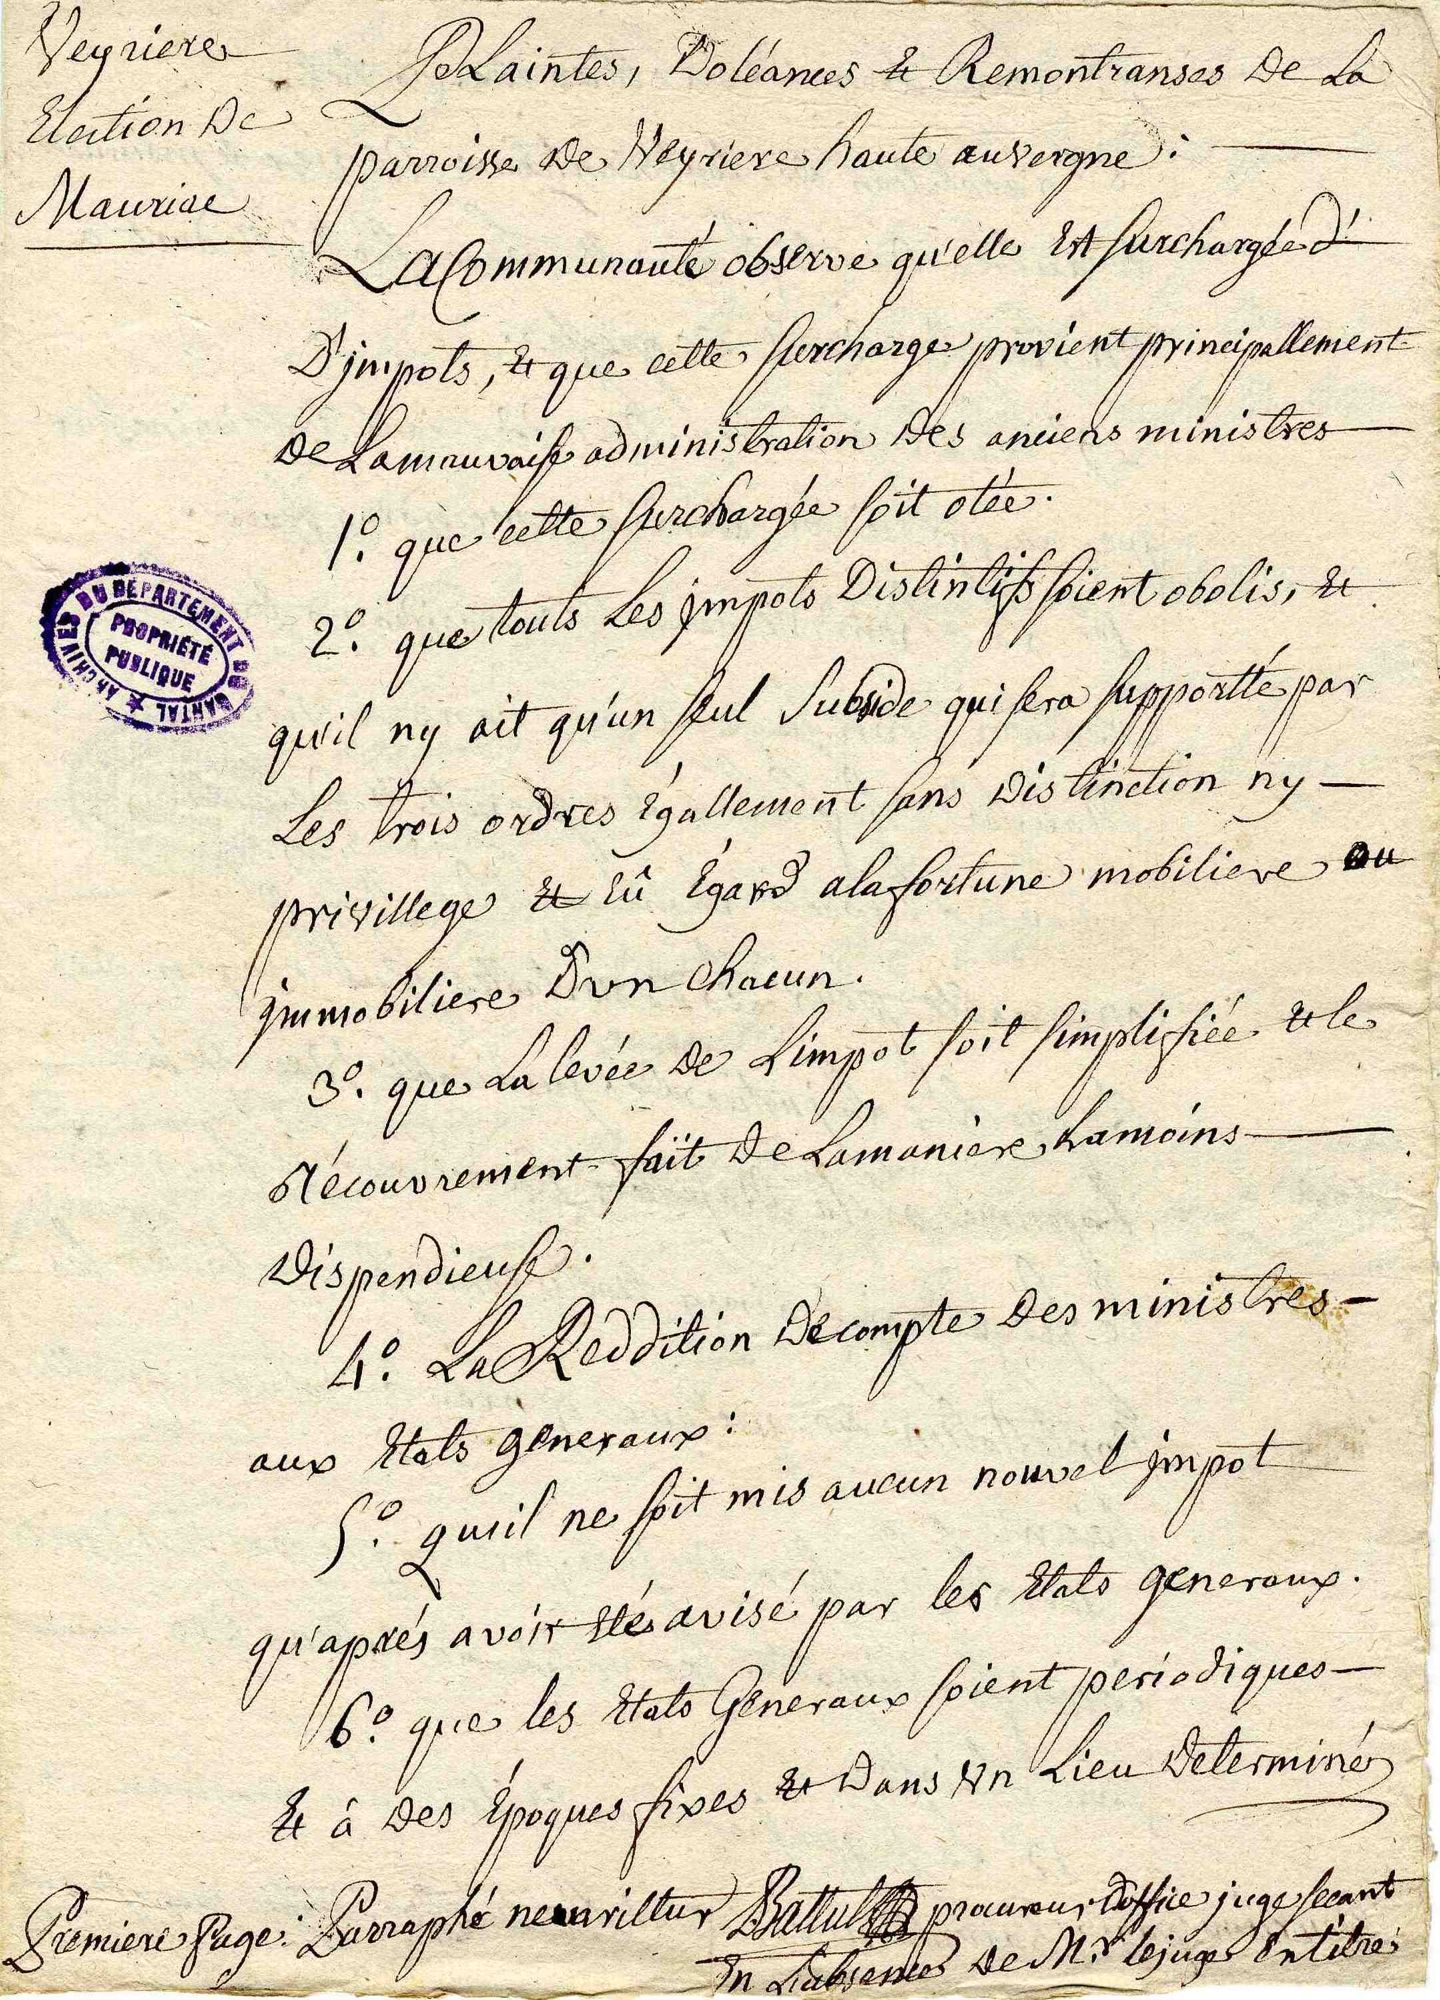 Veyriere
Election De
Mauriac
Plaintes, Doléances et Remontranses De La
parroisse De Veyriere haute auvergne :
La Communauté observe qu'elle Est surchargée d'
D'jmpots, et que cette surcharge provient principallement
De La mauvaise administration Des anciens ministres
1º. que cette surchargée soit otée.
2º. que touts Les jmpots Distintifs soient abolis, et
qu'il ny ait qu'un seul Subside qui sera supportté par
Les trois ordres Égallement sans Distinction ny
privillege et Eû Égard a la fortune mobiliere ou
jmmobiliere D'un chacun.
3º. que La levée De L'impot soit simplifiée et le
Récouvrement fait De La maniere La moins
Dispendieuse.
4º. La Reddition De compte Des ministres
aux Etats generaux :
5º. Qu'il ne soit mis aucun nouvel jmpot
qu'aprés avoir Eté avisé par les Etats generaux.
6º. que les Etats Generaux soient periodiques
Et à Des Époques fixes et Dans un Lieu Determiné
Premiere Page. Parraphé ne varietur Battut procureur D'office juge seant
En L'absence De Mr. le juge En titre
ARCHIVES DU DÉPARTEMENT DU CANTAL
PROPRIÉTÉ
PUBLIQUE